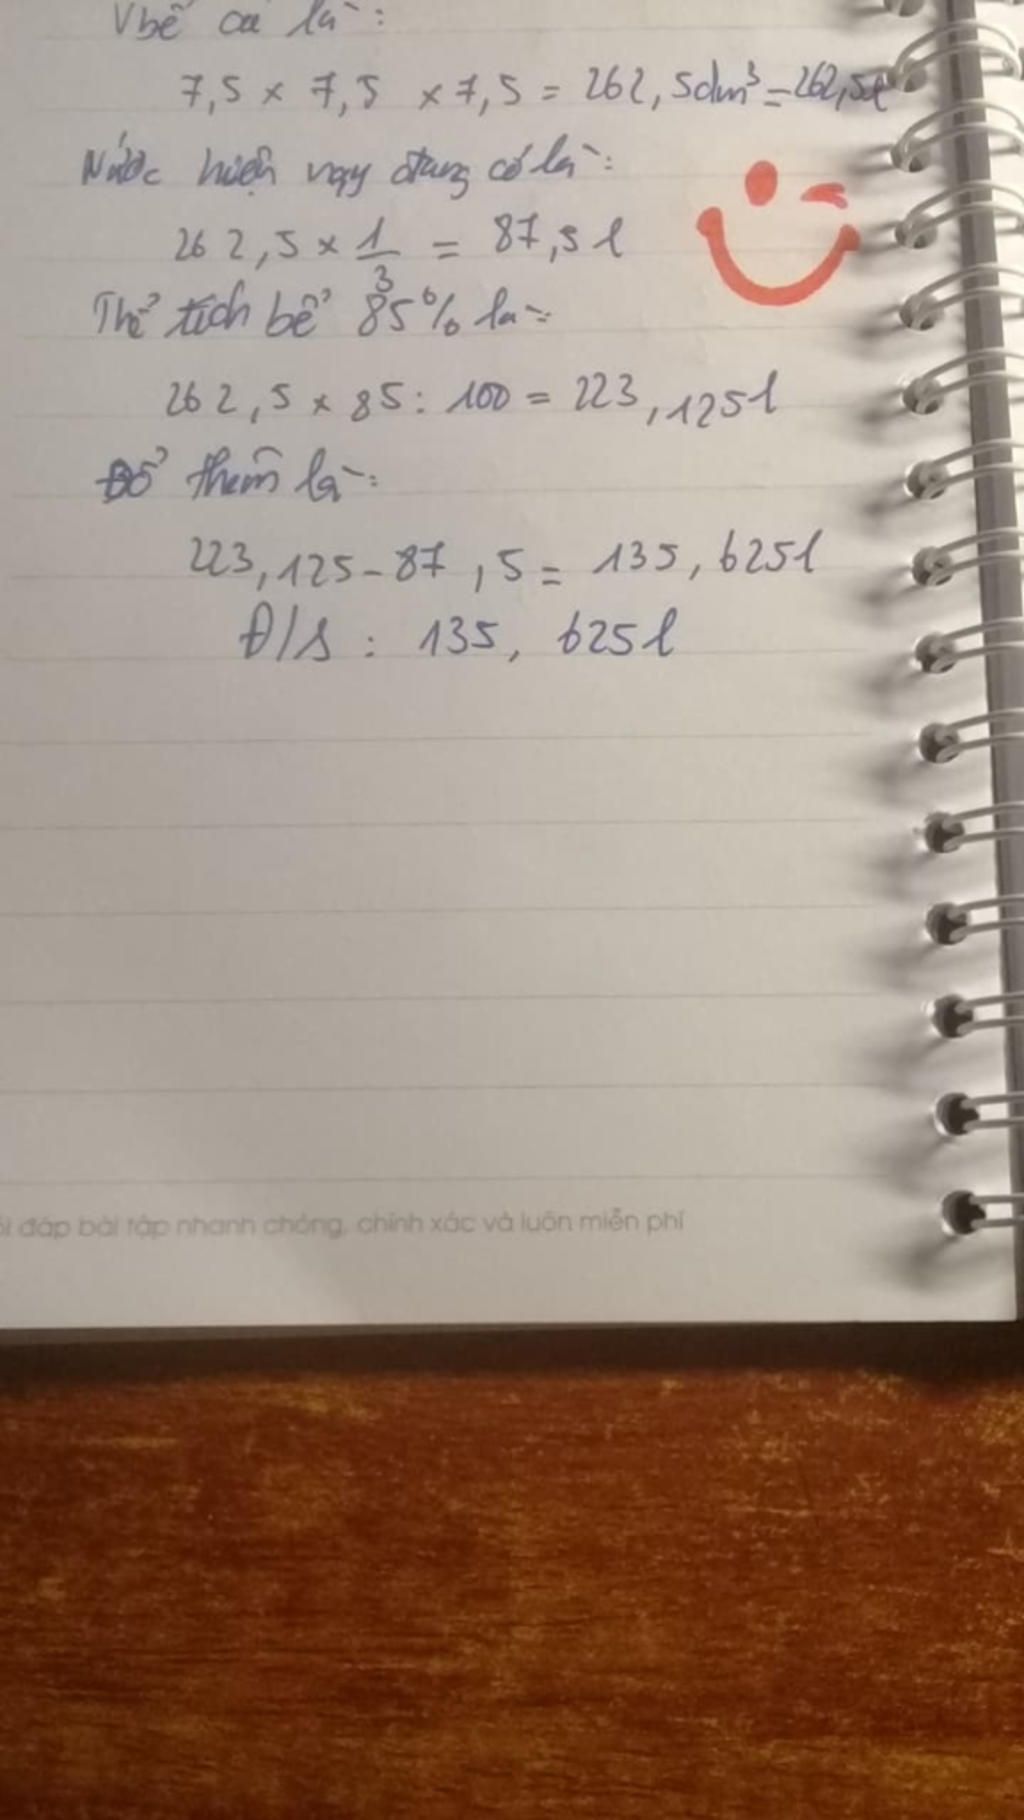 Vbể cá là:
7,5 x 7,5 x 7,5 = 262,5dm³ = 262,5l
Nước hiện nay đang có là:
262,5 x 1/3 = 87,5 l
Thể tích bể 85% là:
262,5 x 85 : 100 = 223,125l
Đổ thêm là:
223,125 - 87,5 = 135,625l
Đ/S : 135,625l
đáp bài tập nhanh chóng, chính xác và luôn miễn phí